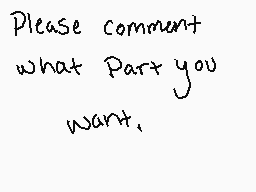 Please comment
what Part you
want.